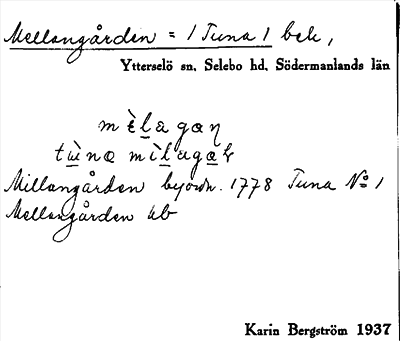 Mellangården = 1 Tuna 1 bek,
Ytterselö sn. Selebo hd. Södermanlands län
mèlagaɳ
tɯ̀na mìlagaɳ
Millangården byordn. 1778 Tuna No 1
Mellangården kb
Karin Bergström 1937